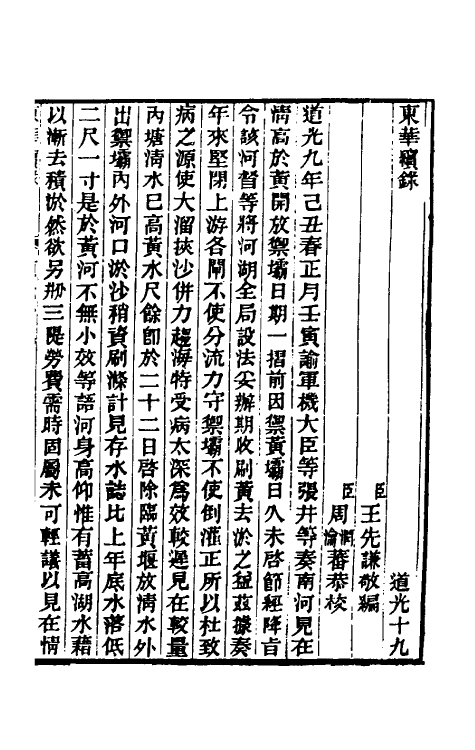 東華續錄　道光十九
臣王先謙敬編
臣周潤蕃瀹蕃恭校
道光九年己丑春正月壬寅諭軍機大臣等張井等奏南河見在
情高於黃開放禦壩日期一摺前因禦黃壩日久未啓節經降旨
令該河督等將河湖全局設法妥辦期收刷黃去淤之益茲據奏
年來堅閉上游各閘不使分流力守禦壩不使倒灌正所以杜致
病之源使大溜挾沙併力趨海特受病太深爲效較遲見在較量
內塘清水已高黃水尺餘卽於二十二日啓除臨黃堰放清水外
出禦壩內外河口淤沙稍資刷滌計見存水誌比上年底水落低
二尺一寸是於黃河不無小效等語河身高仰惟有蓄高湖水藉
以漸去積淤然欲另籌三隄勞費需時固屬未可輕議以見在情